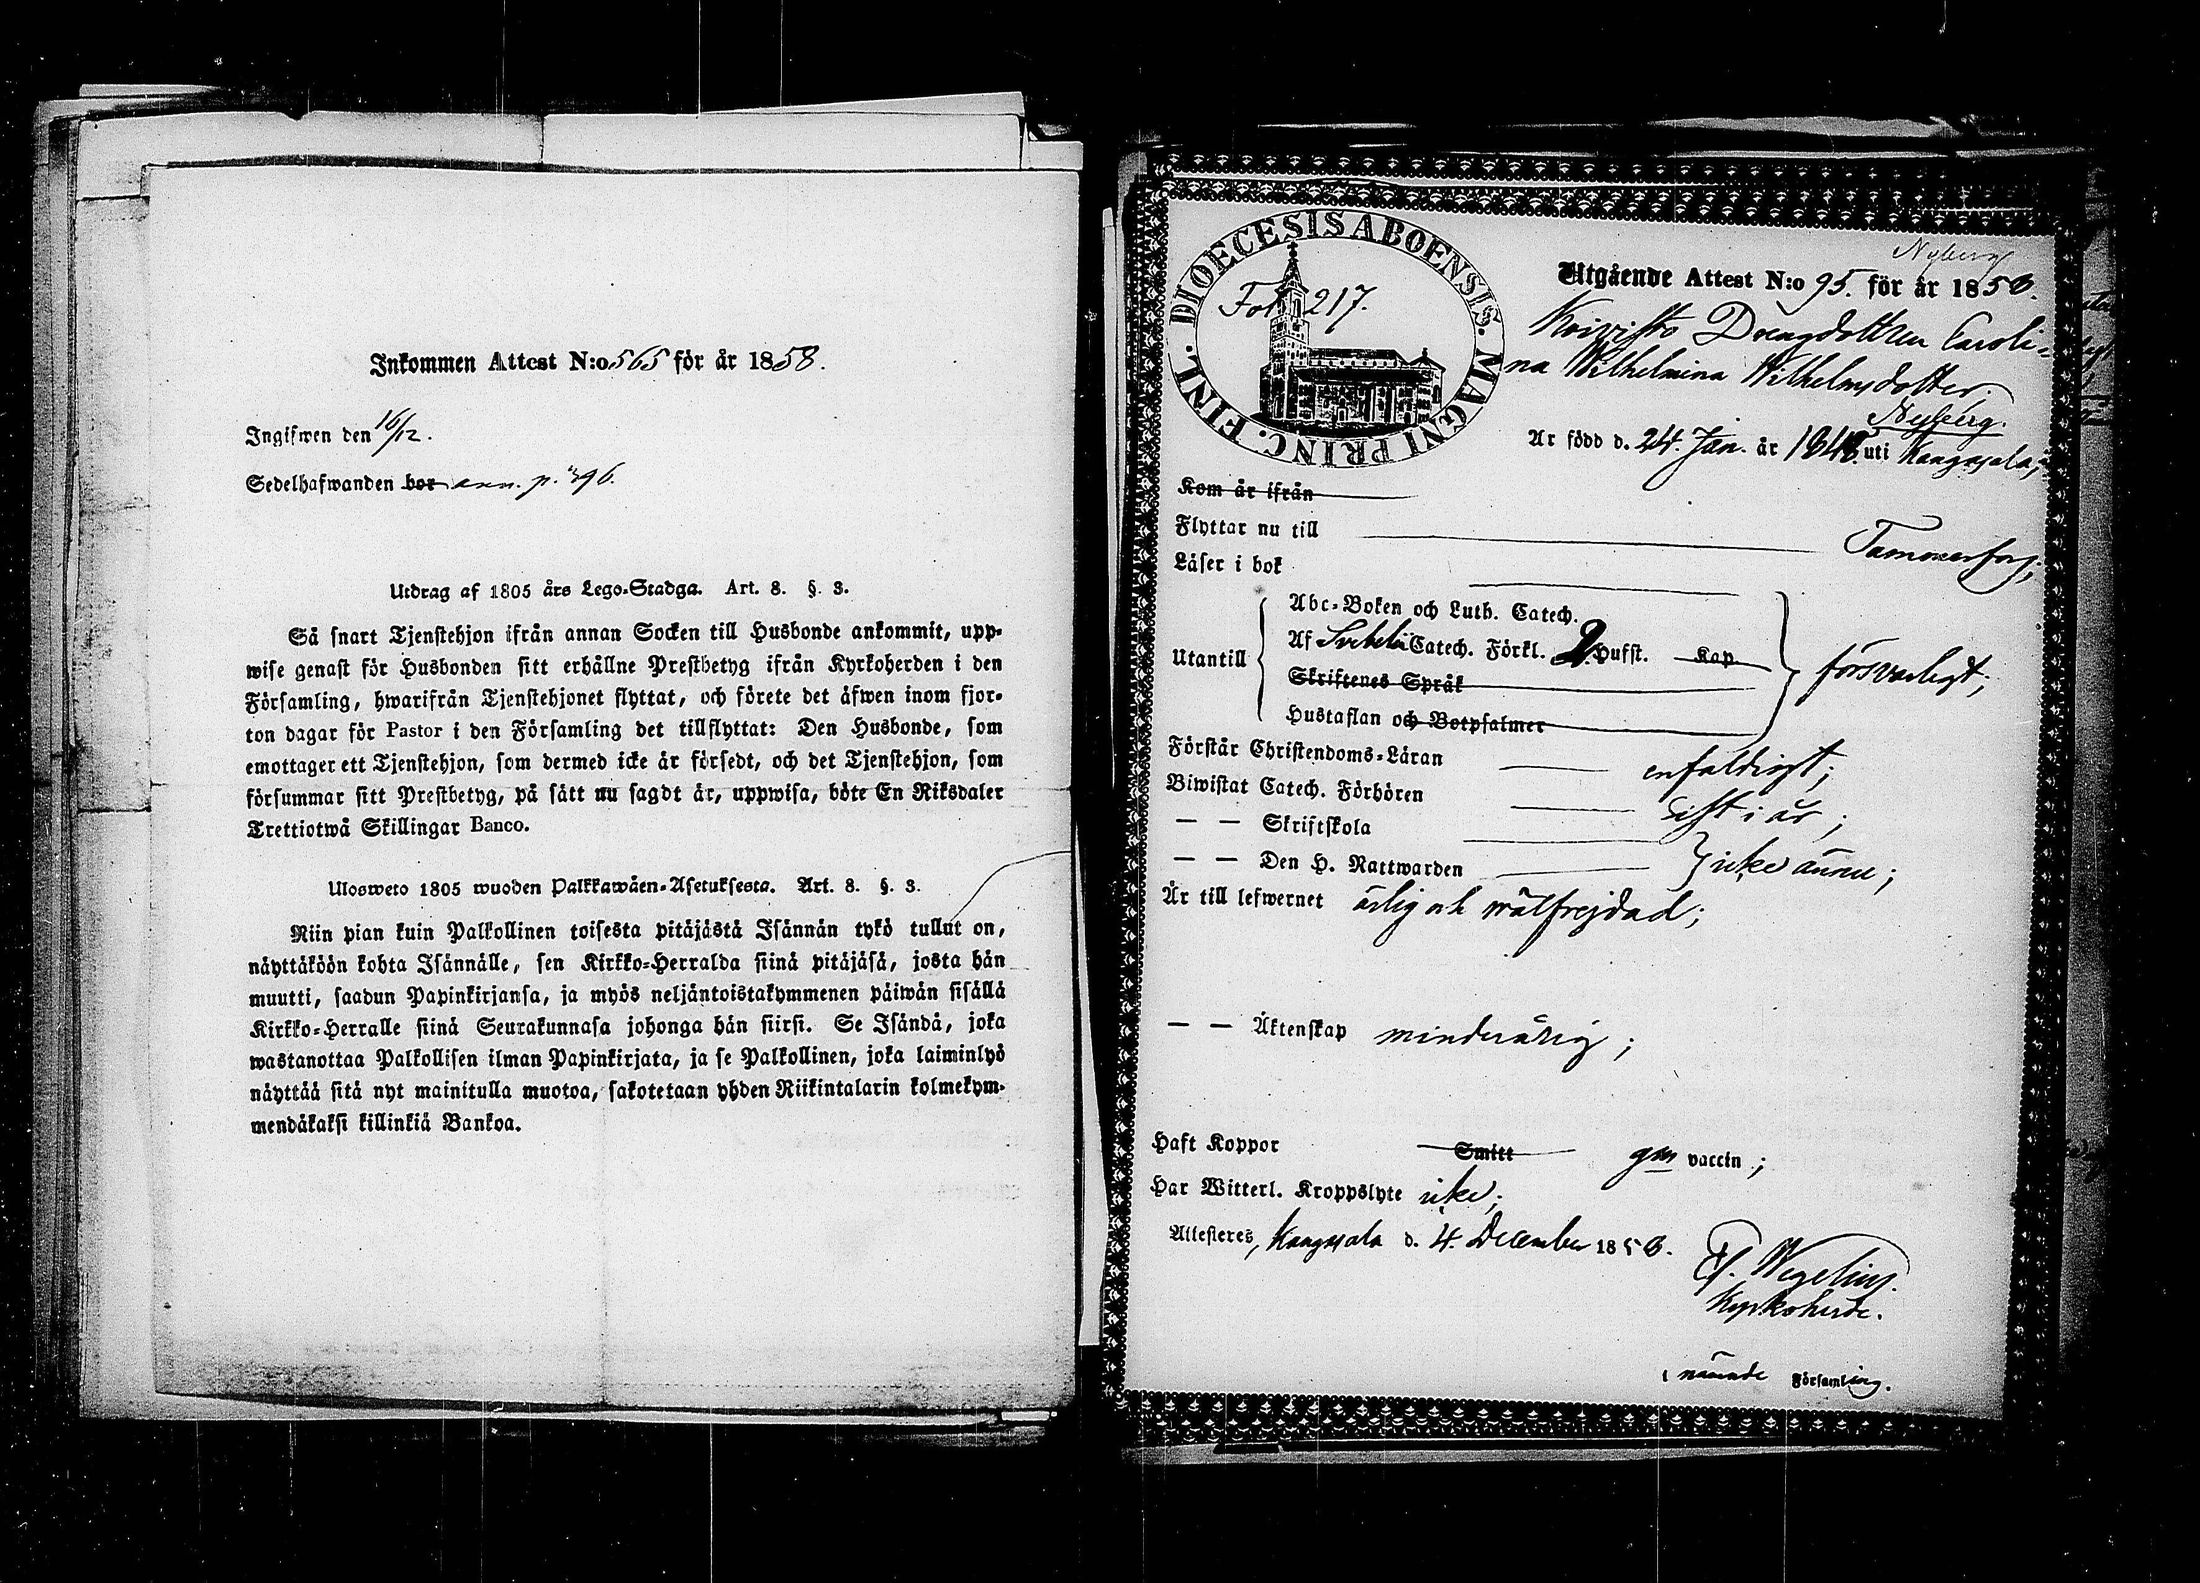 Inkommen Attest N:o 565 för år 1858.
Ingifwen den 16/12.
Sedelhafwanden bor ann. p. 396.
Utdrag af 1805 års Lego-Stadga. Art. 8. §. 3.
Så snart Tjenstehjon ifrån annan Socken till Husbonde ankommit, upp-
wise genast för Husbonden sitt erhållne Prestbetyg ifrån Kyrkoherden i den
Församling, hwarifrån Tjenstehjonet flyttat, och förete det äfwen inom fjor-
ton dagar för Pastor i den Församling det tillflyttat: Den Husbonde, som
emottager ett Tjenstehjon, som dermed icke är försedt, och det Tjenstehjon, som
försummar sitt Prestbetyg, på sätt nu sagdt är, uppwisa, böte En Riksdaler
Trettiotwå Skillingar Banco.
Ulosweto 1805 wuoden Palkkawäen-Asetuksesta. Art. 8. §. 3.
Niin pian kuin Palkollinen toisesta pitäjästä Isännän tykö tullut on,
näyttäköön kohta Isännälle, sen Kirkko-Herralda siinä pitäjäsä, josta hän
muutti, saadun Papinkirjansa, ja myös neljäntoistakymmenen päiwän sisällä
Kirkko-Herralle siinä Seurakunnasa johonga hän siirsi. Se Isändä, joka
wastanottaa Palkollisen ilman Papinkirjata, ja se Palkollinen, joka laiminlyö
näyttää sitä nyt mainitulla muotoa, sakotetaan yhden Riikintalarin kolmekym-
mendäkaksi killinkiä Bankoa.
DIOECESIS ABOENSIS. MAGNI PRINC. FINL.
Fol. 217.
Nyberg
Utgående Attest N:o 95. för år 1858.
Koivisto Drengdottren Caroli-
na Wilhelmina Wilhelmsdotter.
Nyberg.
Är född d. 24. Jan. år 1848. uti Kangasala;
Kom år ifrån
Flyttar nu till Tammerfors;
Läser i bok
Utantill
Abc-Boken och Luth. Catech.
Af Svebelii Catech. Förkl. 2. Hufst. Kap
Skriftenes Språk
Hustaflan och Botpsalmer
försvarligt;
Förstår Christendoms-Läran enfaldigt;
Biwistat Catech. Förhören sist i år;
— — Skriftskola
— — Den H. Nattwarden } icke ännu;
Är till lefwernet ärlig och wälfrejdad;
— — Äktenskap minderårig;
Haft Koppor Smitt gm vaccin;
Har Witterl. Kroppslyte icke;
Attesteres, Kangasala d. 4. December 1858.
Wegelius.
Kyrkoherde.
i nämnde Församling.